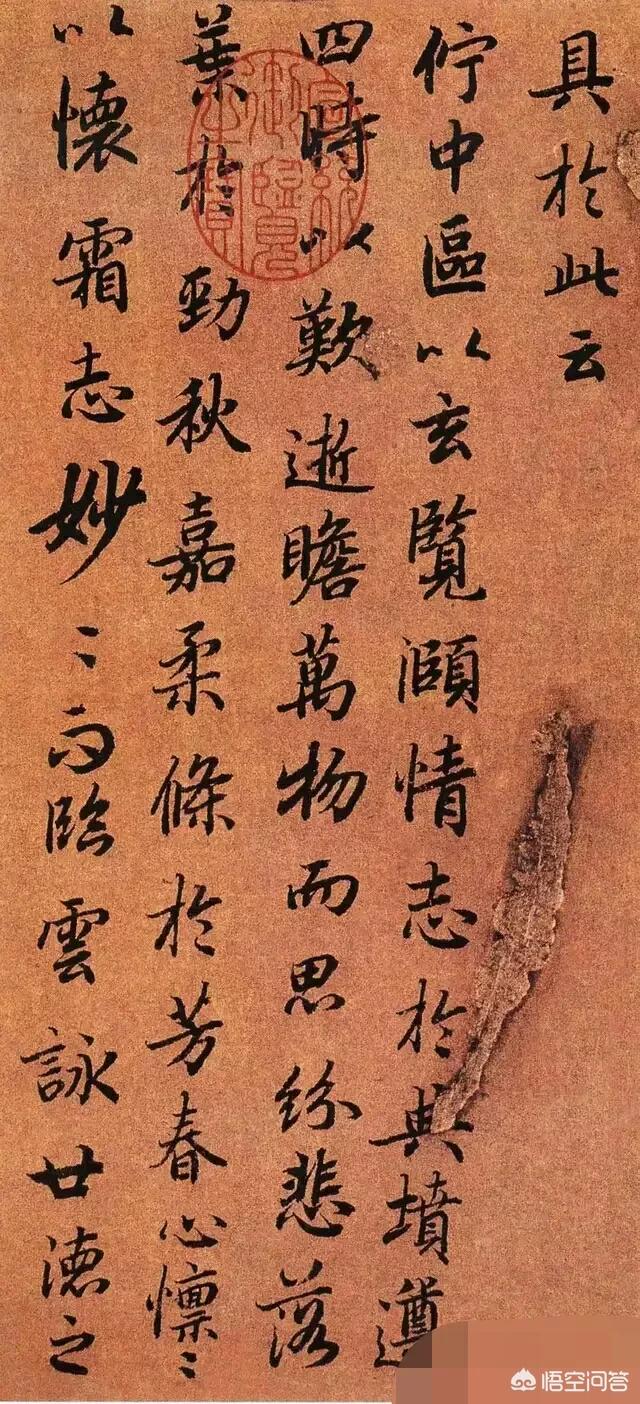 具於此云
佇中區以玄覽頤情志於典墳遵
四時以歎逝瞻萬物而思紛悲落
葉於勁秋嘉柔條於芳春心懍〻
以懷霜志妙〻而臨雲詠世德之
宣統御覽之寶
悟空问答